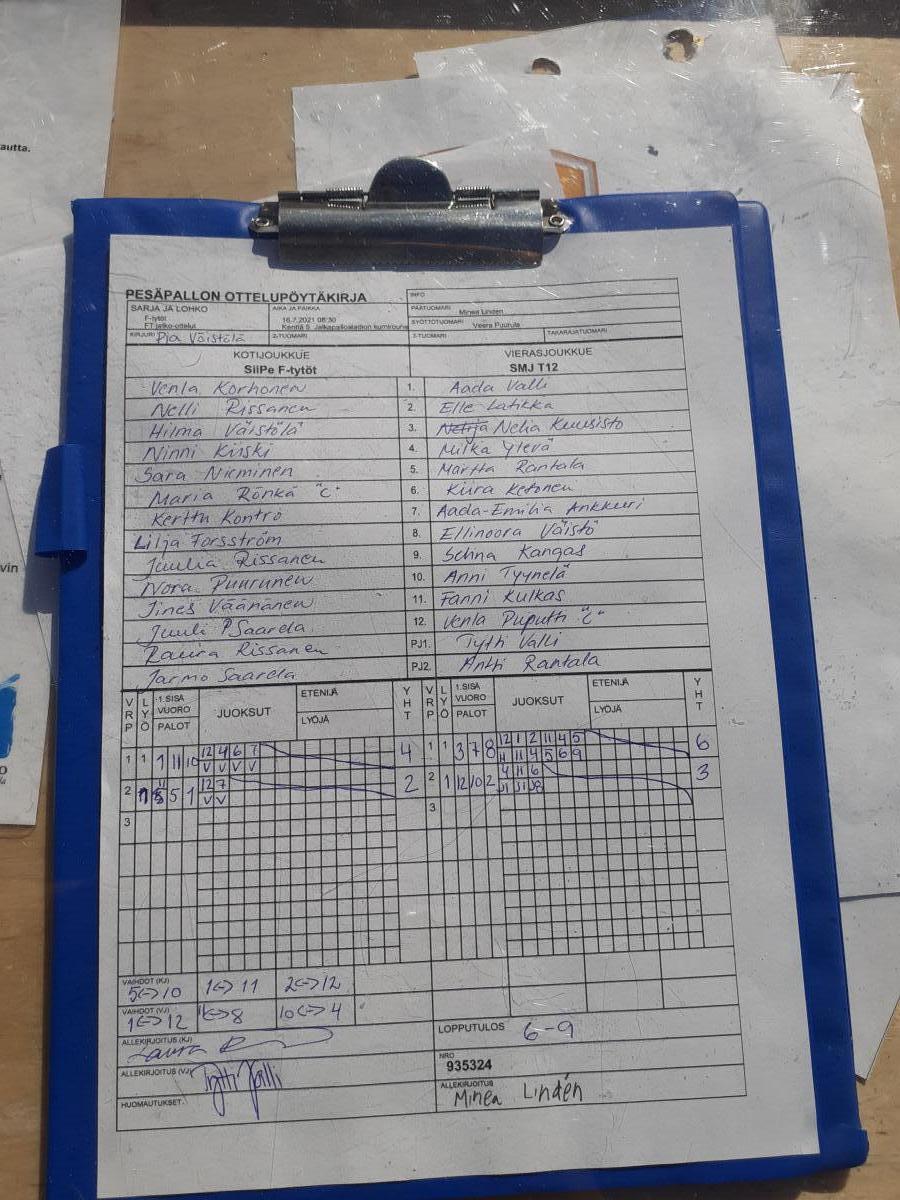 autta.
vin
PESÄPALLON OTTELUPÖYTÄKIRJA
INFO
SARJA JA LOHKO
F-tytöt
FT jatko-ottelut
AIKA JA PAIKKA
16.7.2021 08:30
Kenttä 5. Jalkapallostadion kumirouhe
PÄÄTUOMARI Minea Linden
SYÖTTÖTUOMARI Veera Puurula
KIRJURI Pia Väistölä
2-TUOMARI
3-TUOMARI
TAKARAJATUOMARI
KOTIJOUKKUE
SiiPe F-tytöt
VIERASJOUKKUE
SMJ T12
Venla Korhonen 1. Aada Valli
Nelli Rissanen 2. Elle Latikka
Hilma Väistölä 3. Nelia Kuusisto
Ninni Kiiski 4. Milka Ylevä
Sara Nieminen 5. Martta Rantala
Maria Rönkä "C" 6. Kiira Ketonen
Kerttu Kontro 7. Aada-Emilia Ankkuri
Lilja Forsström 8. Ellinoora Väistö
Juulia Rissanen 9. Selina Kangas
Nora Puurunen 10. Anni Tyynelä
Jines Väänänen 11. Fanni Kulkas
Juuli P Saarela 12. Venla Puputti "C"
Laura Rissanen PJ1. Tytti Valli
Jarmo Saarela PJ2. Antti Rantala
VRP LYÖ 1.SISÄ VUORO PALOT JUOKSUT ETENIJÄ LYÖJÄ YHT
VRP LYÖ 1.SISÄ VUORO PALOT JUOKSUT ETENIJÄ LYÖJÄ YHT
1 1 1 11 10 12 4 6 7 4
V V V V
1 1 3 7 8 12 1 2 11 4 5 6
11 4 5 6 9
2 5 1 12 7 2
V V
2 1 12 10 2 4 11 6 3
3
3
VAIHDOT (KJ)
5<->10 1<->11 2<->12
VAIHDOT (VJ)
1<->12 <->8 10<->4
ALLEKIRJOITUS (KJ)
Laura R
LOPPUTULOS 6-9
ALLEKIRJOITUS (VJ)
Tytti Valli
NRO
935324
HUOMAUTUKSET:
ALLEKIRJOITUS
Minea Lindén